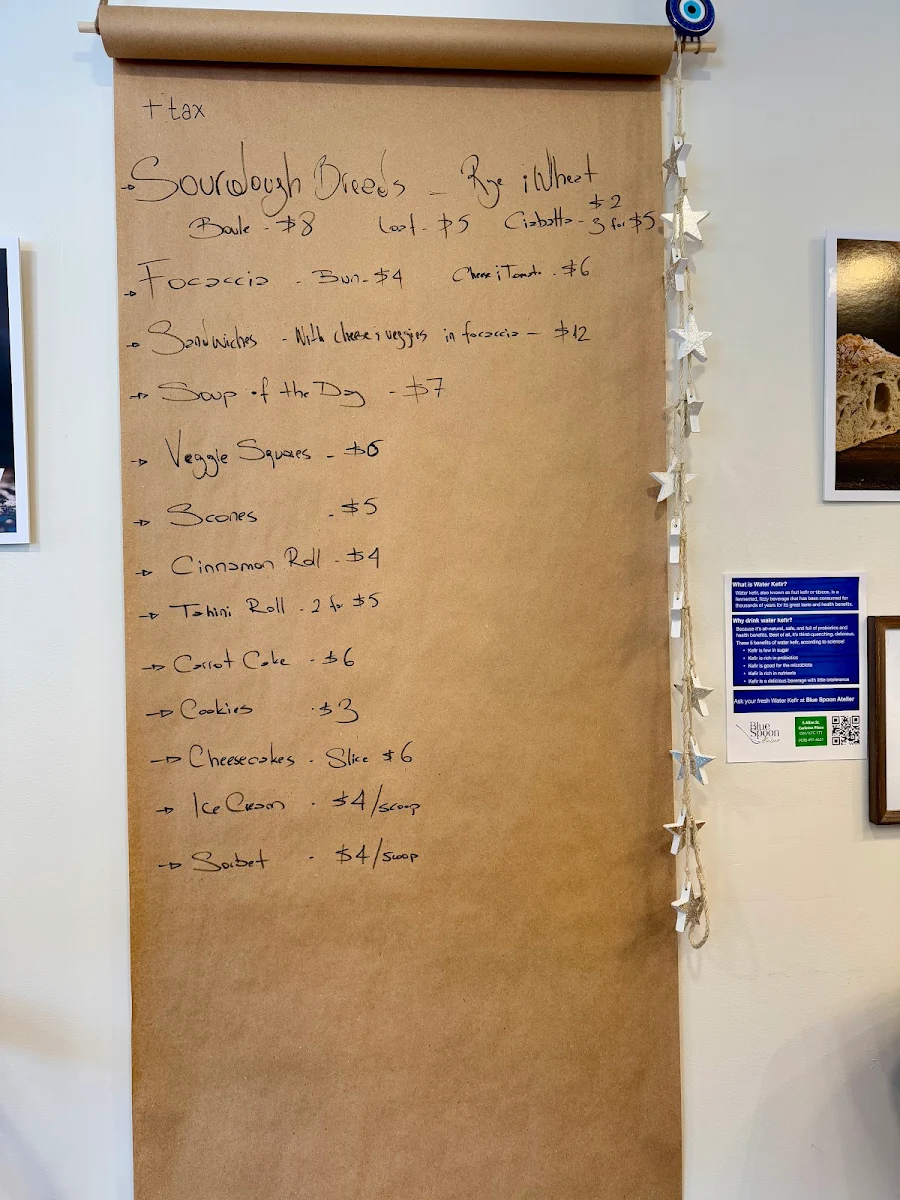 + tax
Sourdough Breads - Rye & Wheat
Boule - $8 Loaf - $5 Ciabatta - $2 3 for $5
Focaccia - Bun - $4 Cheese & Tomato - $6
Sandwiches - With cheese & veggies in focaccia - $12
Soup of the Day - $7
Veggie Squares - $6
Scones - $5
Cinnamon Roll - $4
Tahini Roll - 2 for $5
Carrot Cake - $6
Cookies - $3
Cheesecakes - Slice $6
Ice Cream - $4/scoop
Sorbet - $4/scoop
What is Water Kefir?
Water kefir, also known as fruit kefir or tibicos, is a
fermented, fizzy beverage that has been consumed for
thousands of years for its great taste and health benefits.
Why drink water kefir?
Because it's all-natural, safe, and full of probiotics and
health benefits. Best of all, it's thirst-quenching, delicious.
These 5 benefits of water kefir, according to science!
• Kefir is low in sugar
• Kefir is rich in probiotics
• Kefir is good for the microbiota
• Kefir is rich in nutrients
• Kefir is a delicious beverage with little intolerance
Ask your fresh Water Kefir at Blue Spoon Atelier
Blue
Spoon
Atelier
Carleton Place